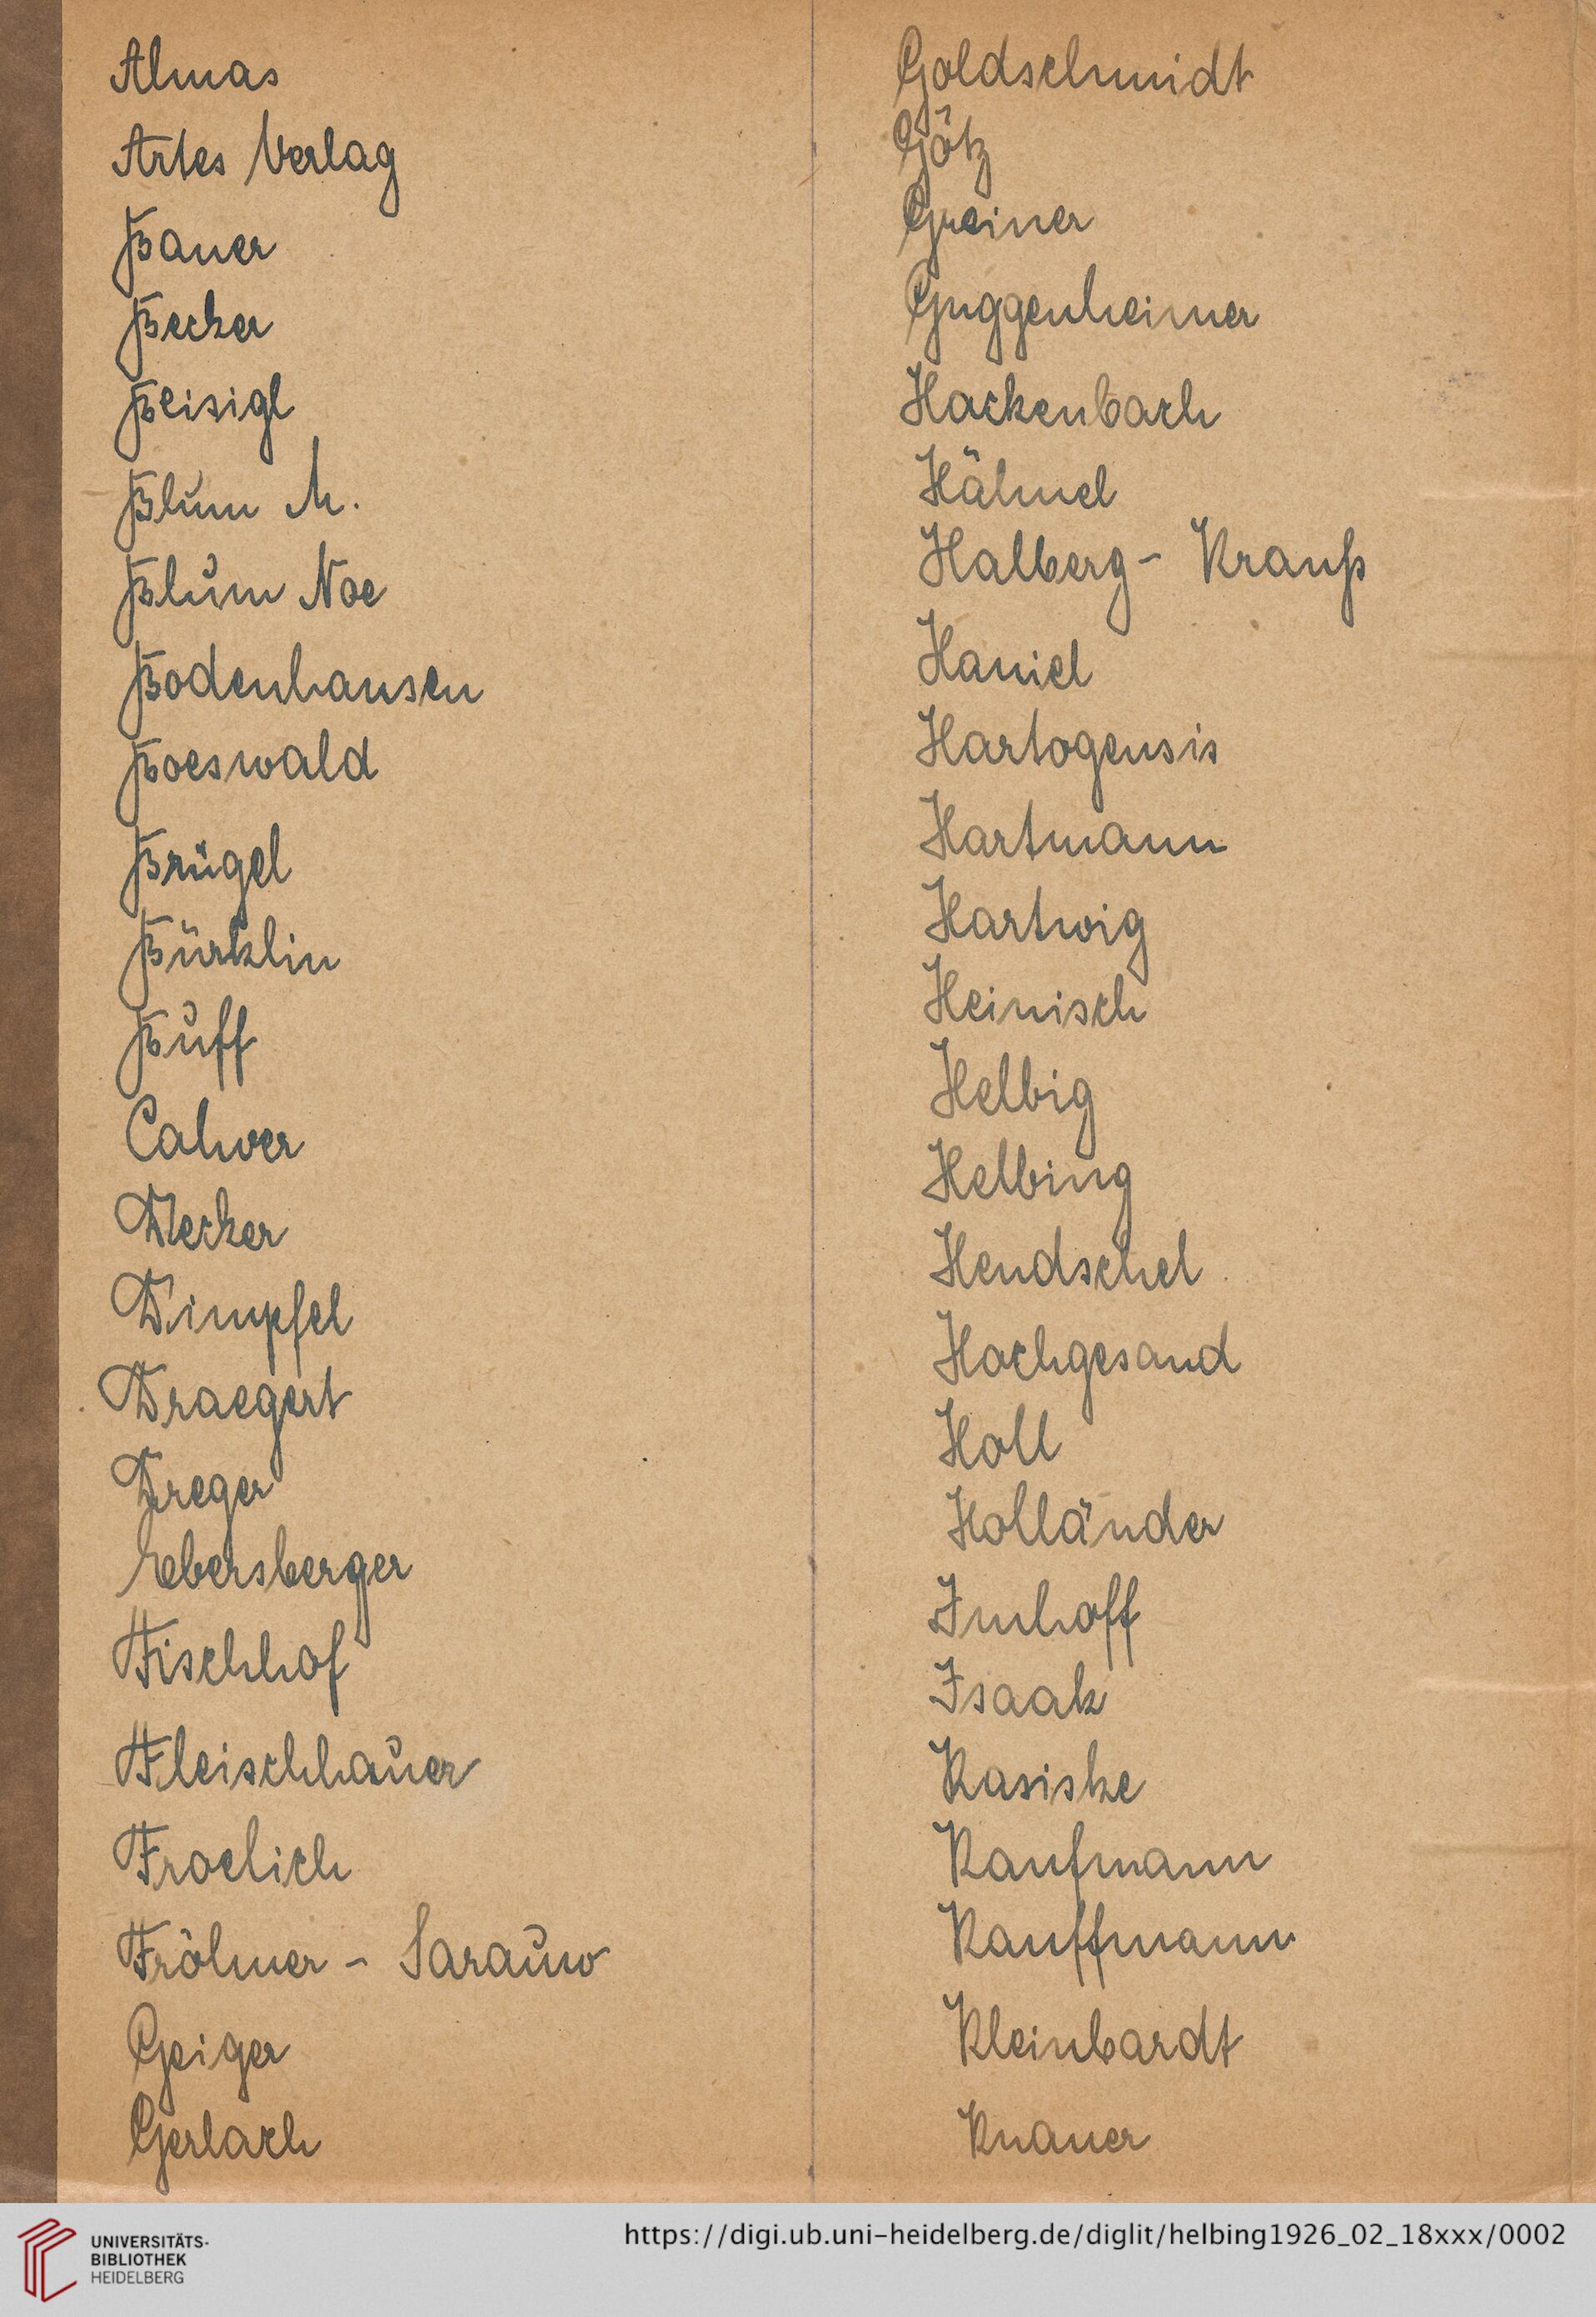 Almas
Artes Verlag
Bauer
Becker
Beisigl
Blum M.
Blum Noe
Bodenhausen
Boeswald
Brügel
Bürklin
Buff
Calwer
Decker
Dimpfel
Draegert
Dreger
Ebersberger
Fischhof
Fleischhauer
Froelich
Fröhner - Sarauw
Geiger
Gerlach
Goldschmidt
Götz
Greiner
Guggenheimer
Hackenbach
Hähnel
Halberg - Krauß
Haniel
Hartogensis
Hartmann
Hartwig
Heinisch
Helbig
Helbing
Hendschel
Hochgesand
Holl
Holländer
Imhoff
Isaak
Kasiske
Kaufmann
Kauffmann
Kleinbardt
Knauer
UNIVERSITÄTS-
BIBLIOTHEK
HEIDELBERG
https://digi.ub.uni-heidelberg.de/diglit/helbing1926_02_18xxx/0002